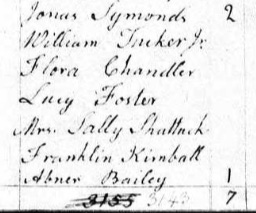 Jonas Symonds 2
William Tucker Jr
Flora Chandler
Lucy Foster
Mrs. Sally Shattuck
Franklin Kimball
Abner Bailey 1
3155 3143 7